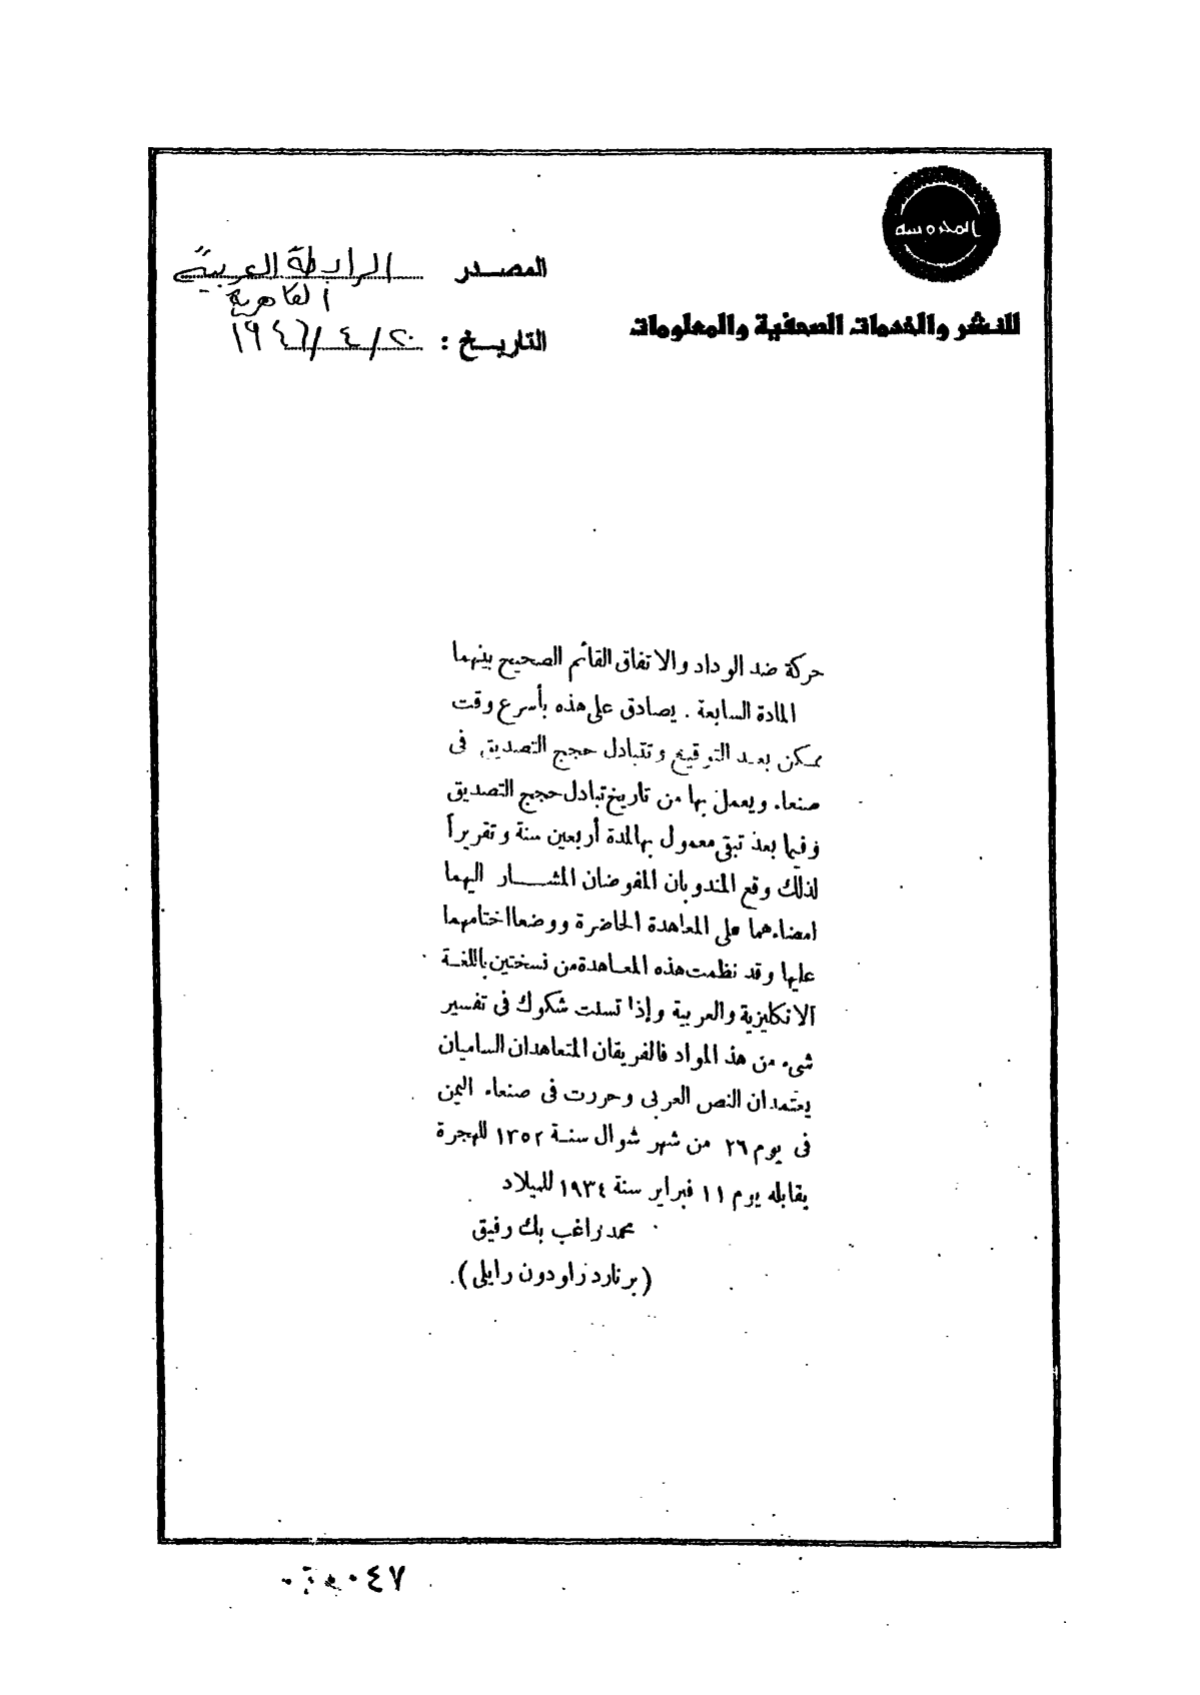 المحروسة
للنشر والخدمات الصحفية والمعلومات
المصدر الرابطة العربية
القاهرة
التاريخ : ٢٠/٤/١٩٤٦
حركة ضد الوداد والاتفاق القائم الصحيح بينهما
المادة السابعة . يصادق على هذه بأسرع وقت
ممكن بعد التوقيع وتتبادل حجج التصديق فى
صنعاء ويعمل بها من تاريخ تبادل حجج التصديق
وفيما بعذ تبقى معمول بها لمدة أربعين سنة وتقريراً
لذلك وقع المندوبان المفوضان المشار اليهما
امضاءهما على المعاهدة الحاضرة ووضعا اختامهما
عليها وقد نظمت هذه المعاهدة من نسختين باللغة
الانكليزية والعربية وإذا تسلت شكوك فى تفسير
شىء من هذ المواد فالفريقان المتعاهدان الساميان
يعتمدان النص العربى وحررت فى صنعاء اليمن
فى يوم ٢٦ من شهر شوال سنة ١٣٥٢ للهجرة
يقابله يوم ١١ فبراير سنة ١٩٣٤ للميلاد
محمد راغب بك رفيق
(برنارد زاودون رايلى).